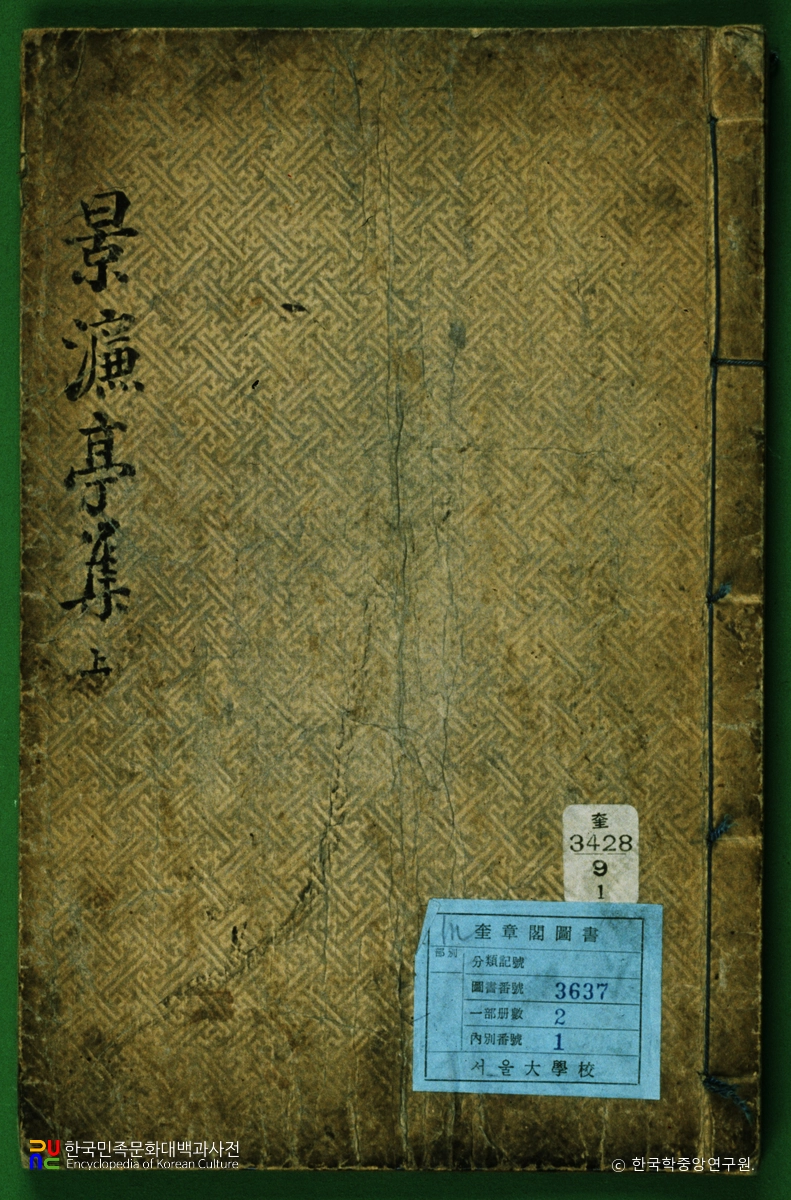 景濂亭集 上
奎
3428
9
1
奎章閣圖書
部別
分類記號
圖書番號 3637
一部册數 2
內別番號 1
서울大學校
한국민족문화대백과사전
Encyclopedia of Korean Culture
© 한국학중앙연구원